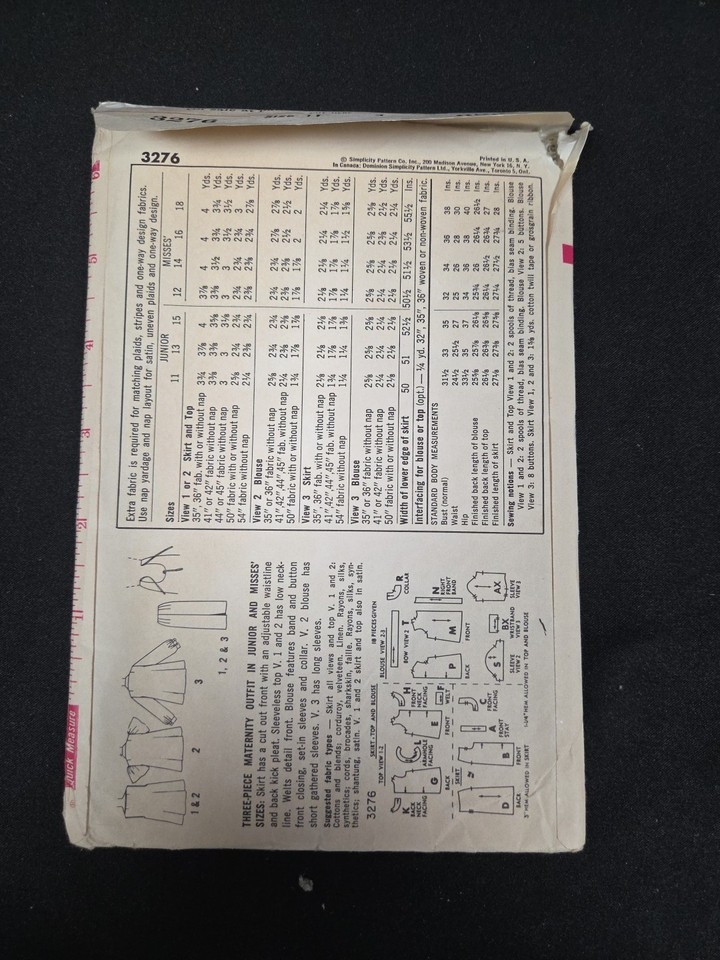 3276
3276
© Simplicity Pattern Co., Inc., 200 Madison Avenue, New York 16, N. Y.
Printed in U. S. A.
In Canada: Dominion Simplicity Patterns Ltd., Yorkville Ave., Toronto 5, Ont.
Extra fabric is required for matching plaids, stripes and one-way design fabrics.
Use nap yardage and nap layout for satin, uneven plaids and one-way design.
JUNIOR MISSES'
Sizes 11 13 15 12 14 16 18
View 1 or 2 Skirt and Top
35", 36" fab. with or without nap 3¾ 3⅞ 4 3⅞ 4 4 4 Yds.
41" or 42" fabric without nap 3⅜ 3⅜ 3⅝ 3⅜ 3½ 3¾ 3¾ Yds.
44" or 45" fabric without nap 3 3 3⅛ 3 3 3½ 3½ Yds.
50" fabric with or without nap 2⅝ 2¾ 2¾ 2¾ 2¾ 2¾ 3 Yds.
54" fabric without nap 2¼ 2⅜ 2¾ 2⅜ 2⅜ 2¾ 2⅞ Yds.
View 2 Blouse
35" or 36" fabric without nap 2⅝ 2¾ 2¾ 2¾ 2¾ 2⅞ 2⅞ Yds.
41",42",44",45" fab. without nap 2¼ 2¼ 2⅜ 2⅜ 2⅜ 2½ 2½ Yds.
50" fabric with or without nap 1¾ 1¾ 1⅞ 1⅞ 1⅞ 2 2 Yds.
View 3 Skirt
35", 36" fab. with or without nap 2⅛ 2⅛ 2⅛ 2⅛ 2⅛ 2¼ 2¼ Yds.
41",42",44",45" fab. without nap 1¾ 1¾ 1⅞ 1⅞ 1⅞ 1⅞ 1⅞ Yds.
54" fabric without nap 1¼ 1¼ 1⅜ 1¼ 1¼ 1½ 1⅝ Yds.
View 3 Blouse
35" or 36" fabric without nap 2⅝ 2⅝ 2⅝ 2⅝ 2⅝ 2⅝ 2⅝ Yds.
41" or 42" fabric without nap 2¼ 2¼ 2¼ 2¼ 2¼ 2⅜ 2½ Yds.
50" fabric without nap 2⅛ 2⅛ 2⅛ 2⅛ 2⅛ 2¼ 2¼ Yds.
Width of lower edge of skirt 50 51 52½ 50½ 51½ 53½ 55½ Ins.
Interfacing for blouse or top (opt.) — ¼ yd. 32", 35", 36" woven or non-woven fabric.
STANDARD BODY MEASUREMENTS
Bust (normal) 31½ 33 35 32 34 36 38 Ins.
Waist 24½ 25½ 27 25 26 28 30 Ins.
Hip 33½ 35 37 34 36 38 40 Ins.
Finished back length of blouse 25⅝ 25⅞ 26⅛ 25¾ 26 26¼ 26½ Ins.
Finished back length of top 26⅛ 26⅜ 26⅝ 26¼ 26½ 26¾ 27 Ins.
Finished length of skirt 27⅛ 27⅜ 27⅝ 27¼ 27½ 27¾ 28 Ins.
Sewing notions — Skirt and Top View 1 and 2: 2 spools of thread, bias seam binding. Blouse
View 1 and 2: 2 spools of thread, bias seam binding. Blouse View 2: 5 buttons. Blouse
View 3: 8 buttons. Skirt View 1, 2 and 3: 1⅝ yds. cotton twill tape or grosgrain ribbon.
Quick Measure
1 2 3 4 5 6
1 & 2
2
3
1, 2 & 3
THREE-PIECE MATERNITY OUTFIT IN JUNIOR AND MISSES'
SIZES: Skirt has a cut out front with an adjustable waistline
and back kick pleat. Sleeveless top V. 1 and 2 has low neck-
line. Welts detail front. Blouse features band and button
front closing, set-in sleeves and collar. V. 2 blouse has
short gathered sleeves. V. 3 has long sleeves.
Suggested fabric types — Skirt all views and top V. 1 and 2:
Cottons and blends; corduroy, velveteen. Linen. Rayons, silks,
synthetics; cords, brocades, sharkskin, faille. Rayons, silks, syn-
thetics; shantung, satin. V. 1 and 2 skirt and top also in satin.
3276
SKIRT - TOP AND BLOUSE
18 PIECES GIVEN
TOP VIEW 1-2
BLOUSE VIEW 2-3
K BACK NECK FACING
G BACK
L ARMHOLE FACING
E FRONT
H FRONT NECK FACING
F WELT
P BACK
T BOW VIEW 2
M FRONT
N RIGHT FRONT BAND
R COLLAR
SKIRT
D BACK
B FRONT
A FRONT STAY
C FRONT FACING
S SLEEVE VIEW 2
BX WRISTBAND VIEW 3
AX SLEEVE VIEW 3
3" HEM ALLOWED IN SKIRT
1-3/4" HEM ALLOWED IN TOP AND BLOUSE